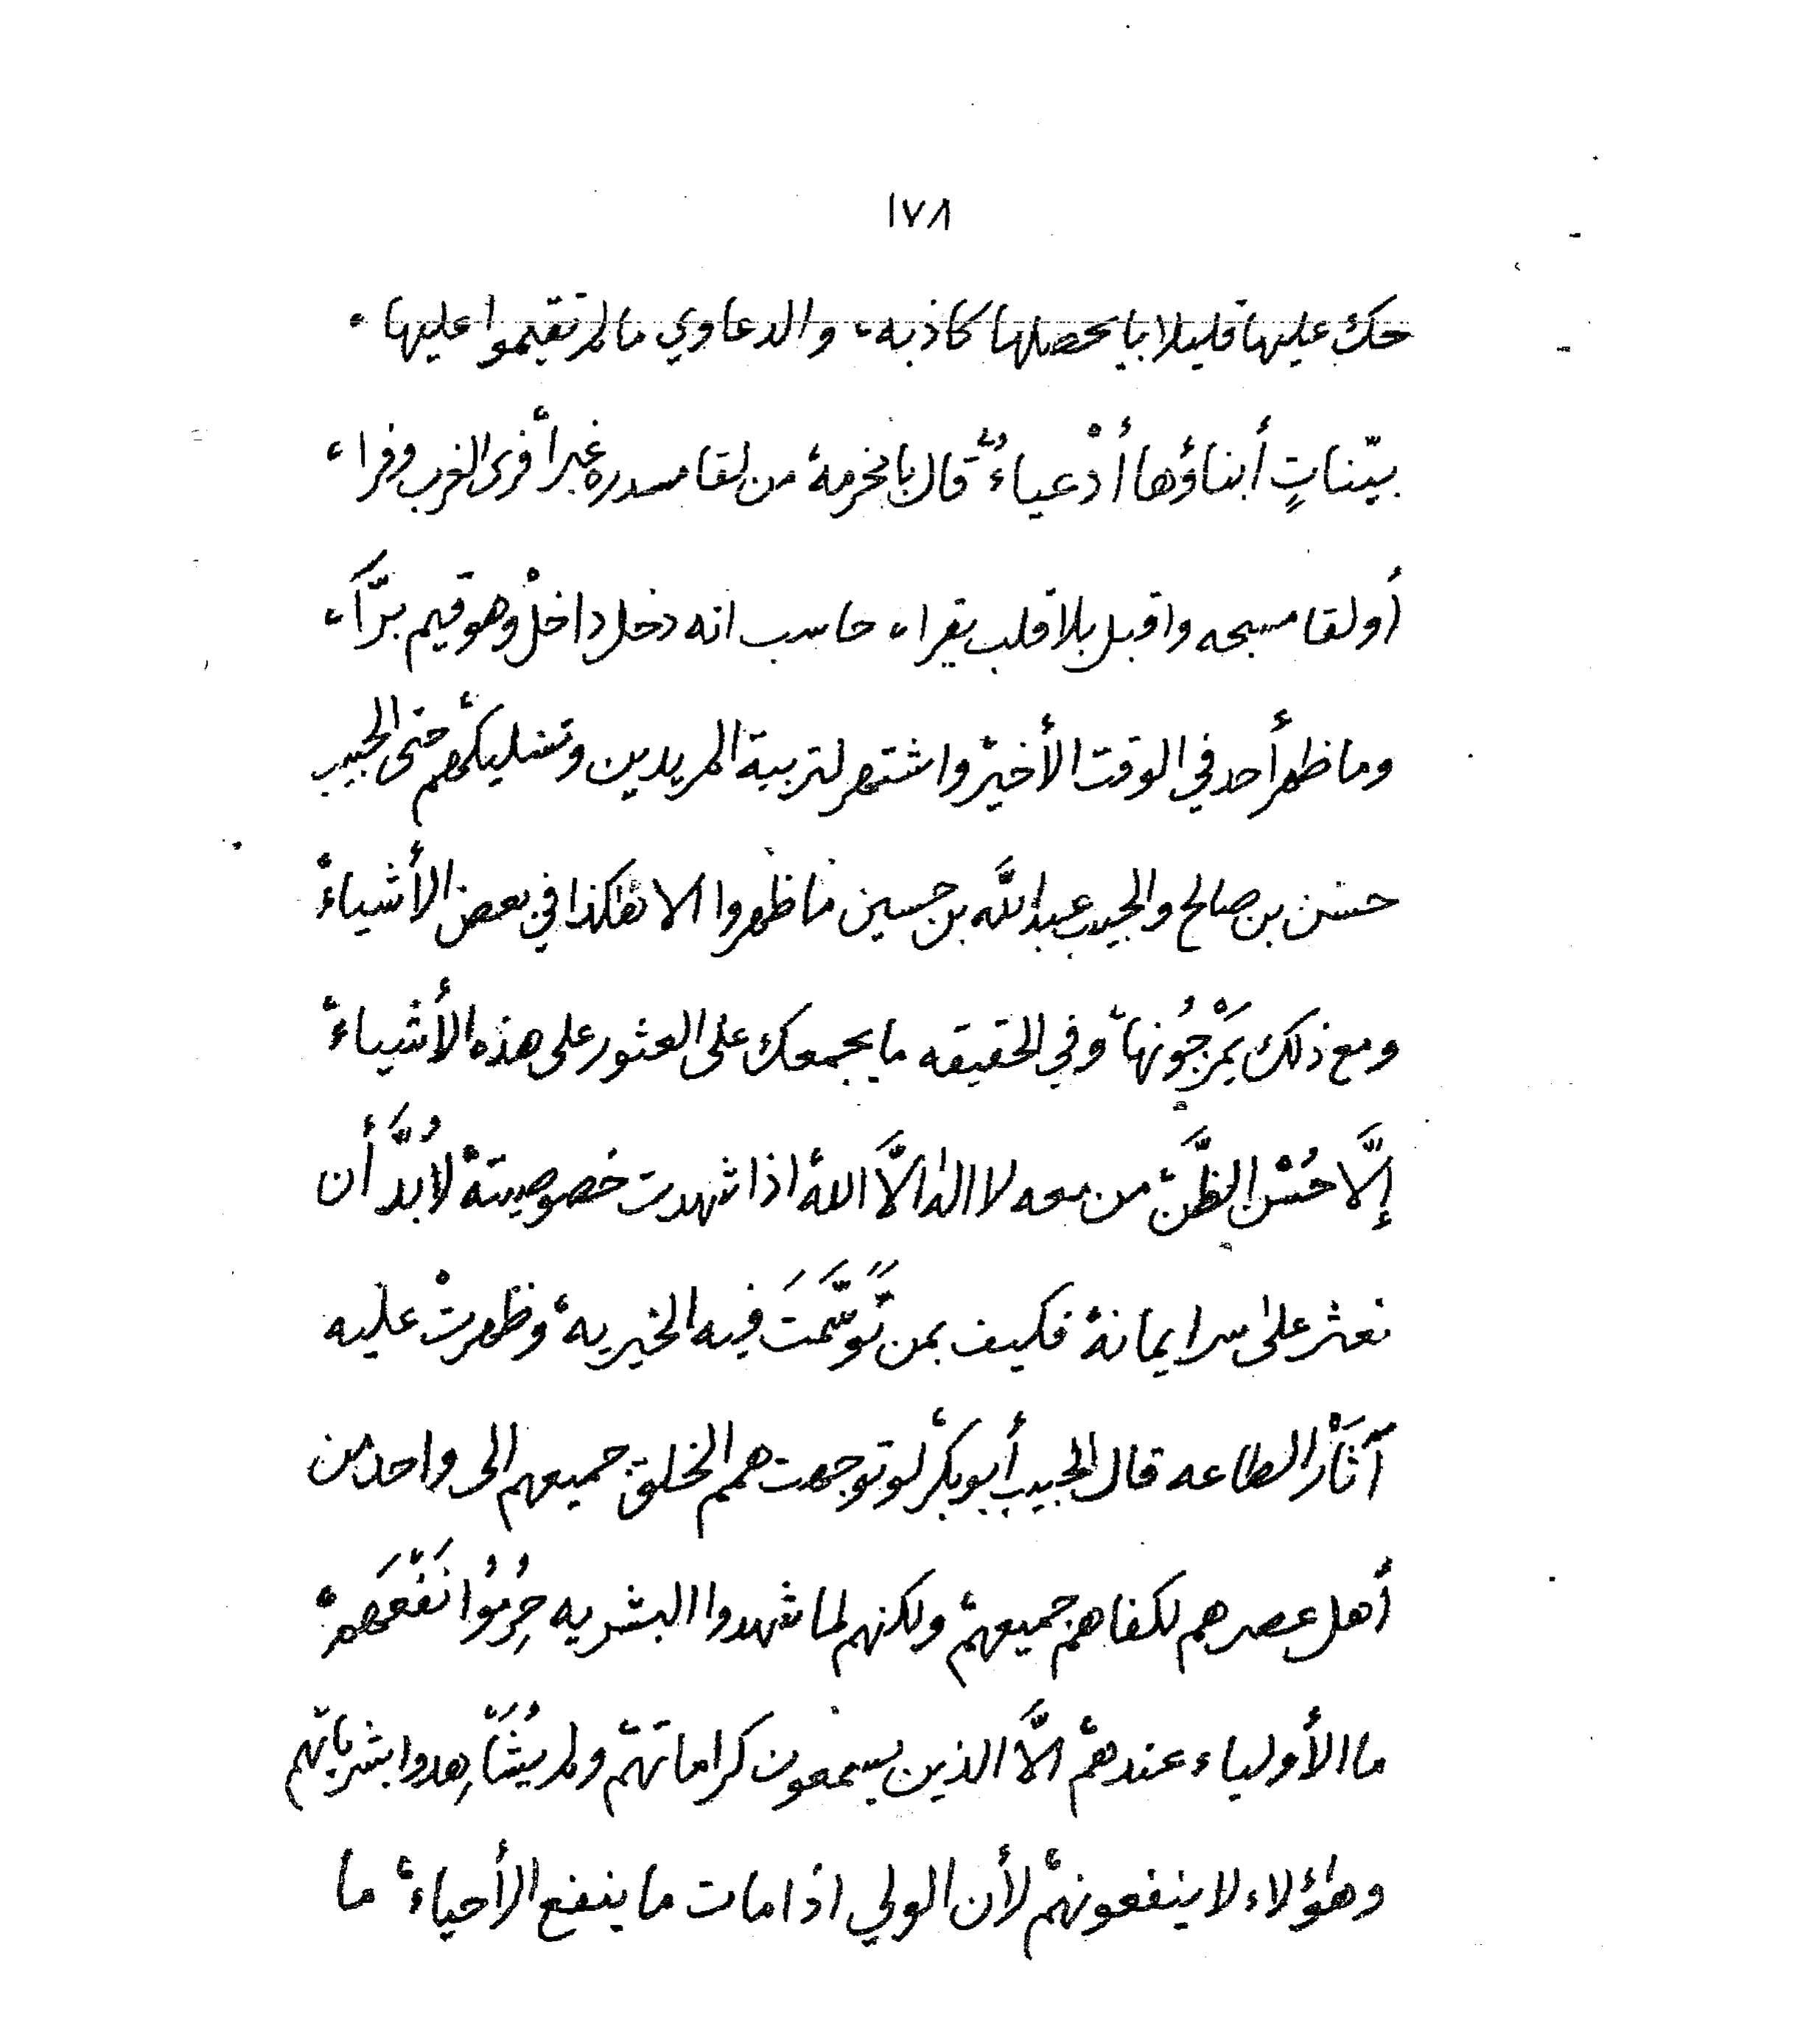 ١٧٨
حك عليها قليلا بايحصلها كاذبه، والدعاوي ما لم تقيموا عليها،
بيّناتٍ أبناؤها أدْعياءُ، قال بامخرمة من لقا مسدره غبرا فرى الغرب وفراء
أو لقا مسبحه واقبل بلا قلب يقراء حاسب انه دخل داخلْ وهو قيم برّاً،
وما ظهر أحد في الوقت الأخيرْ واشتهر لتربية المريدين وتسليكهم حتى الحبيب
حسن بن صالح والحبيب عبدالله بن حسين ما ظهروا الا هكذا في بعض الأشياءْ
ومع ذلك يَمْزجُونها، وفي الحقيقه ما يجمعك على العثور على هذه الأشياءْ
إلَّا حُسْن الظَّنّ، من معه لا اله الَّا الله اذا شهدت خصوصيتهْ لابُدَّ أن
تعثر على سر ايمانهْ فكيف بمن توَسَّمَتَ فيه الخيريهْ وظهرتْ عليه
آثَارْ الطاعه قال الحبيب أبوبكرْ لو توجهت همم الخلق جميعهم الى واحد من
أهل عصرهم لكفاهم جميعهمْ ولكنهم لما شهدوا البشريه حِرِمُوُا نَفْعَهمْ
ما الأولياء عندهمْ الَّا الذين يسمعون كراماتهمْ ولم يُشَاهِدوا بشرياتهم
وهؤلاء لا ينفعونهمْ لأن الولي اذا مات ما ينفع الأحياءْ ما